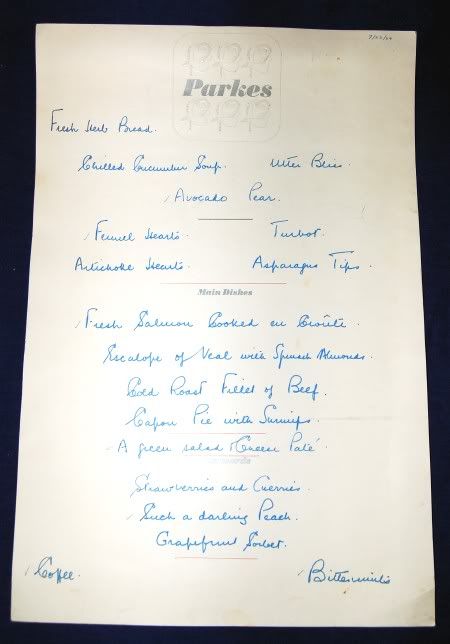 Parkes
Fresh Herb Bread.
Chilled Cucumber Soup. Utter Bliss.
Avocado Pear.
Fennel Hearts. Turbot.
Artichoke Hearts. Asparagus Tips.
Main Dishes
Fresh Salmon Cooked en Croûte.
Escalope of Veal with Spinach Almonds.
Cold Roast Fillet of Beef.
Capon Pie with Shrimps.
A green salad & Cheese Paté
Strawberries and Cherries.
Such a darling Peach.
Grapefruit Sorbet.
Coffee. Bittermints